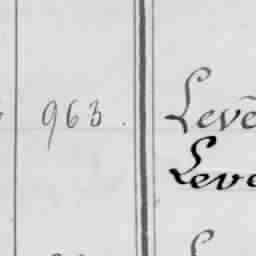 963. Levē
Leve